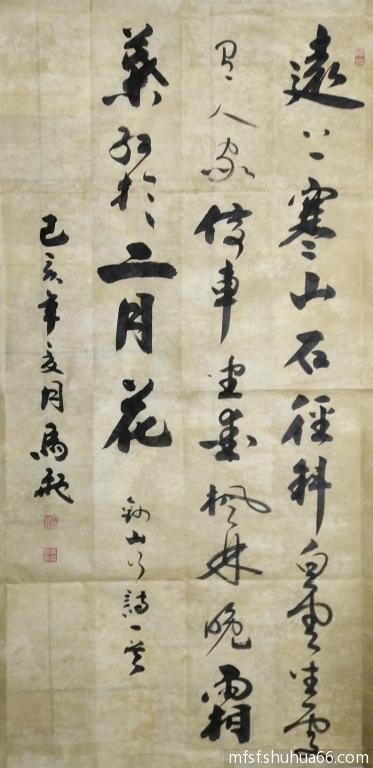 遠上寒山石徑斜白雲生處
有人家停車坐愛楓林晚霜
葉紅於二月花
錄山行詩一首
己亥年夏月
mfsf.shuhua66.com